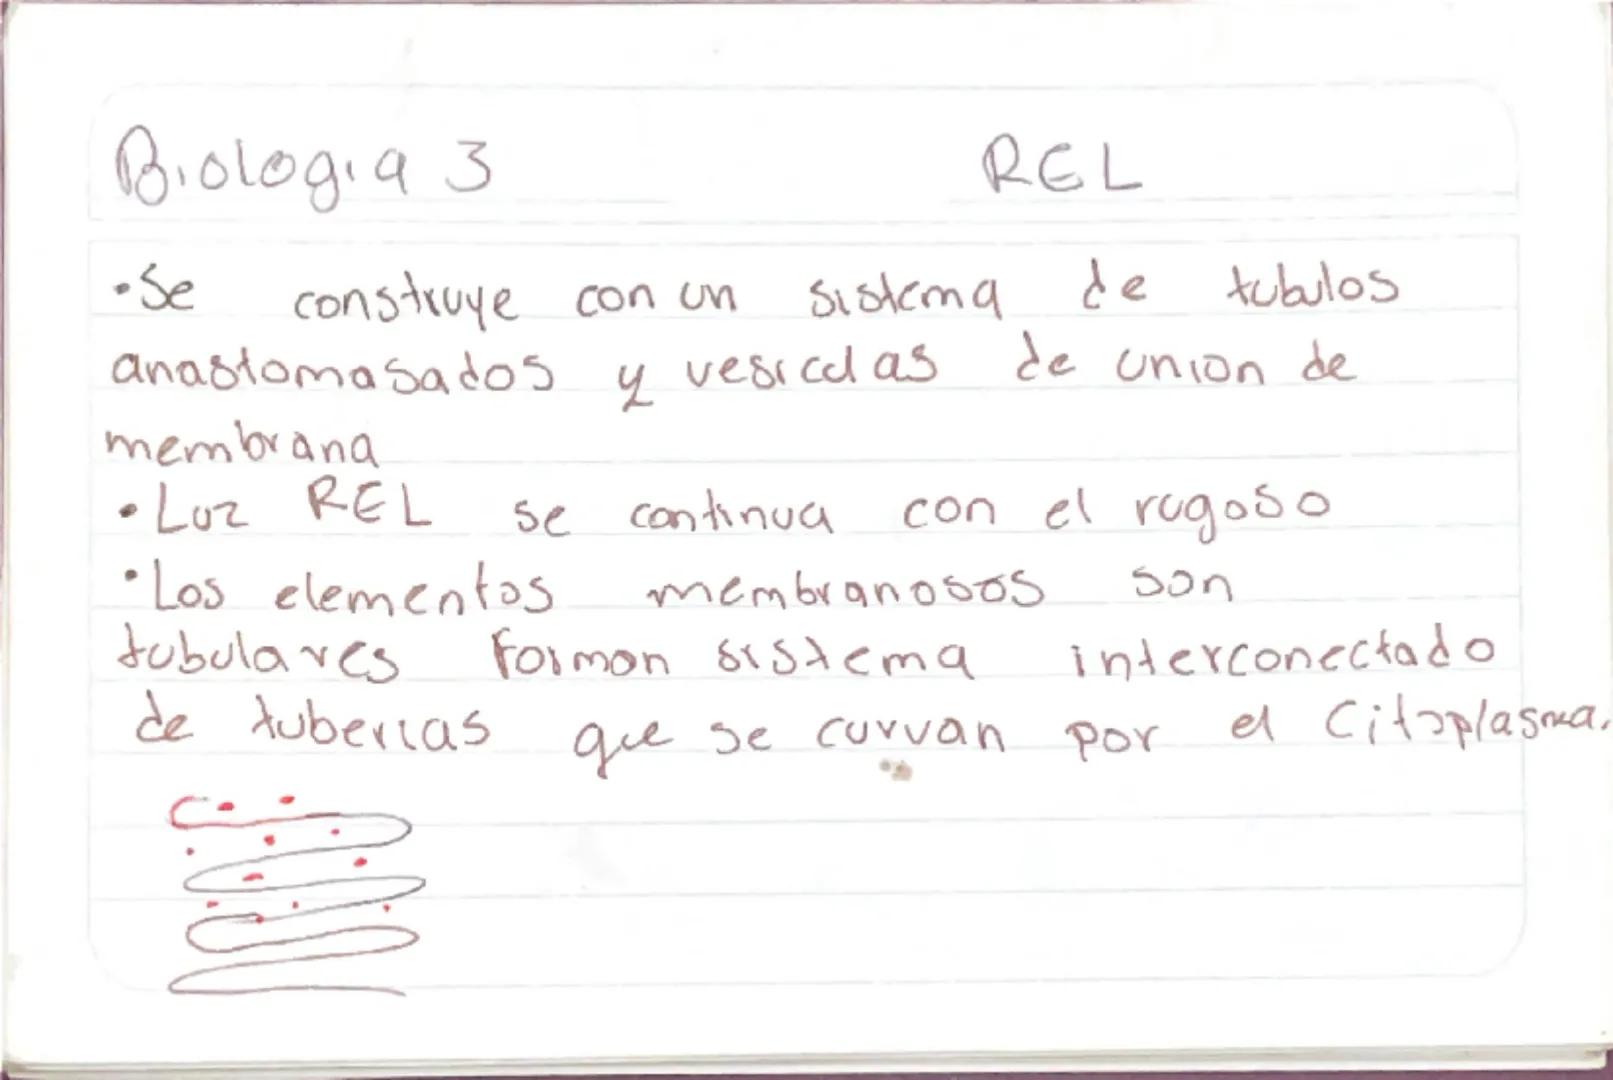 Biologia 3 REL
•Se construye con un sistema de tubulos
anastomasados y vesiculas de union de
membrana
•Luz REL se continua con el rugoso
•Los elementos membranosos son
tubulares forman sistema interconectado
de tuberias que se curvan por el Citoplasma.